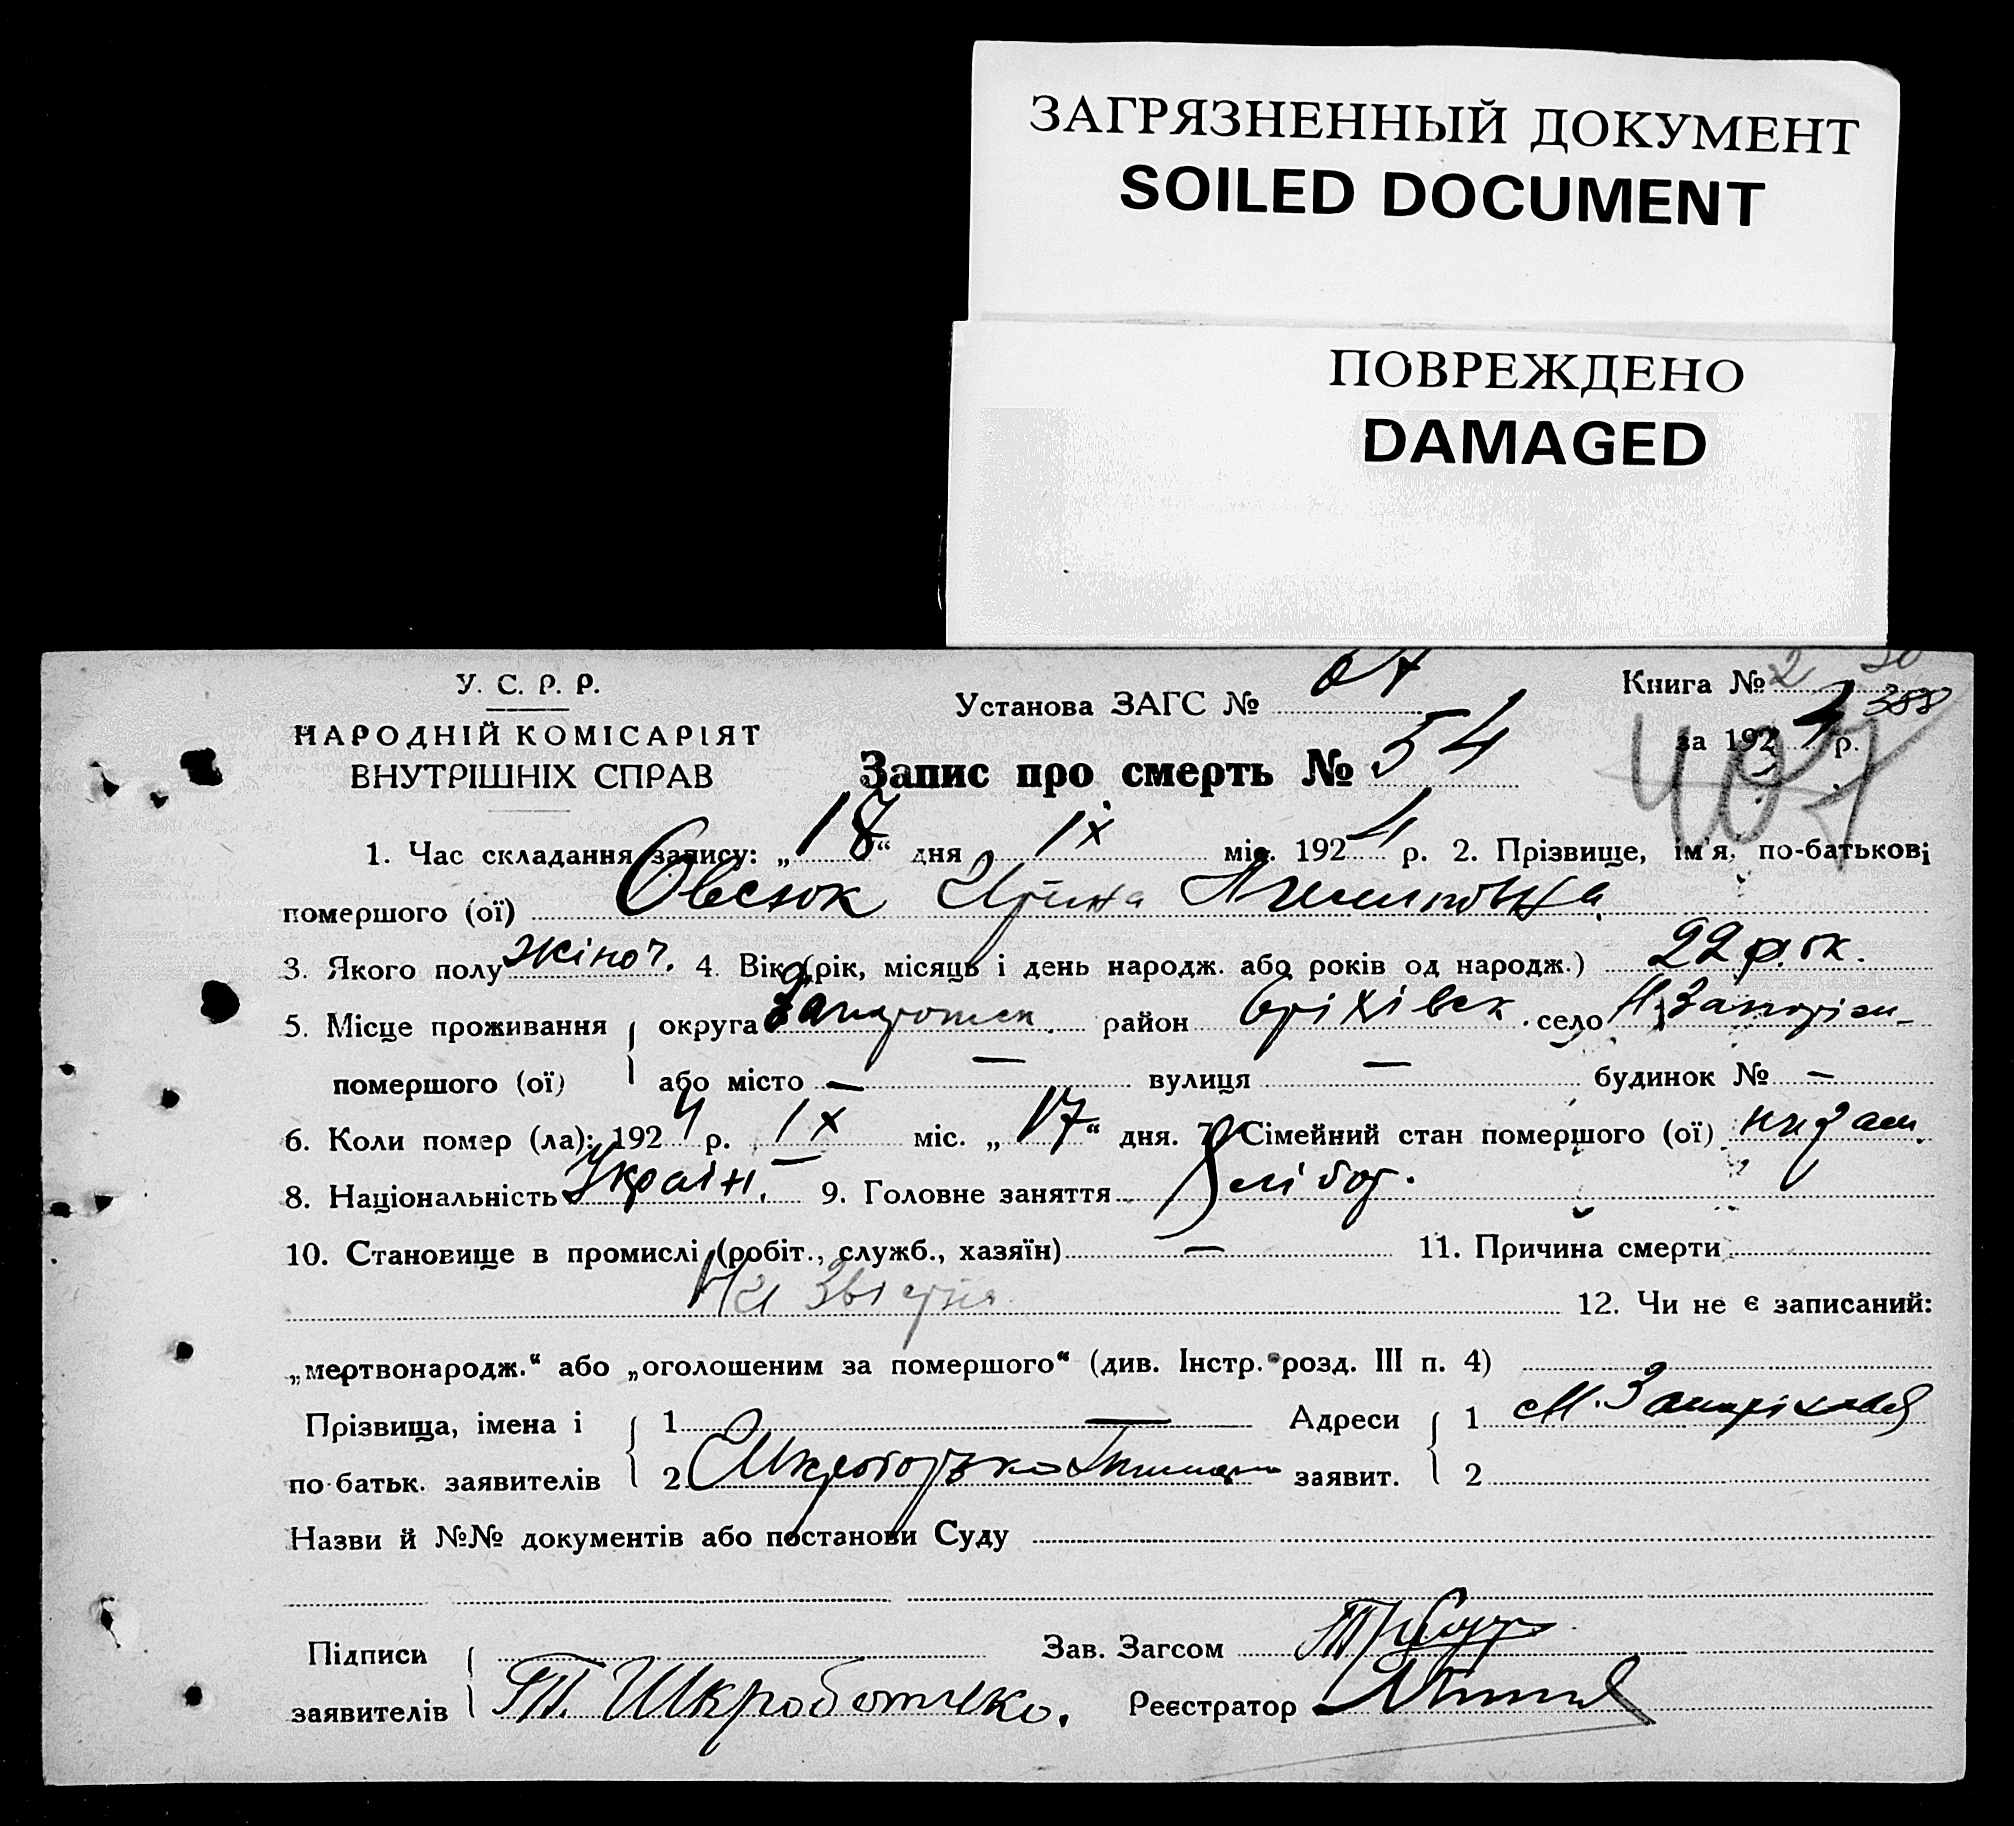 ЗАГРЯЗНЕННЫЙ ДОКУМЕНТ
SOILED DOCUMENT
ПОВРЕЖДЕНО
DAMAGED
У. С. Р. Р.
НАРОДНІЙ КОМІСАРІЯТ
ВНУТРІШНІХ СПРАВ
Установа ЗАГС №
Книга № 2
388
за 1924 р.
407
Запис про смерть № 54
1. Час складання запису: „18“ дня ІХ міс. 1924 р. 2. Прізвище, ім'я, по-батькові
помершого (ої) Овсюк Ирина
3. Якого полу жіноч. 4. Вік (рік, місяць і день народж. або років од народж.) 22 рок.
5. Місце проживання округа район Оріхівськ. село
помершого (ої) або місто — — вулиця — будинок № —
6. Коли помер (ла): 1924 р. ІХ міс. „17“ дня. 7. Сімейний стан помершого (ої)
8. Національність Україн. 9. Головне заняття Хлібор.
10. Становище в промислі (робіт., служб., хазяїн) — 11. Причина смерти
12. Чи не є записаний:
„мертвонародж.“ або „оголошеним за помершого“ (див. Інстр. розд. III п. 4)
Прізвища, імена і 1 — Адреси 1
по-батьк. заявителів 2 заявит. 2
Назви й №№ документів або постанови Суду
Підписи Зав. Загсом
заявителів Т. Шкработько. Реєстратор